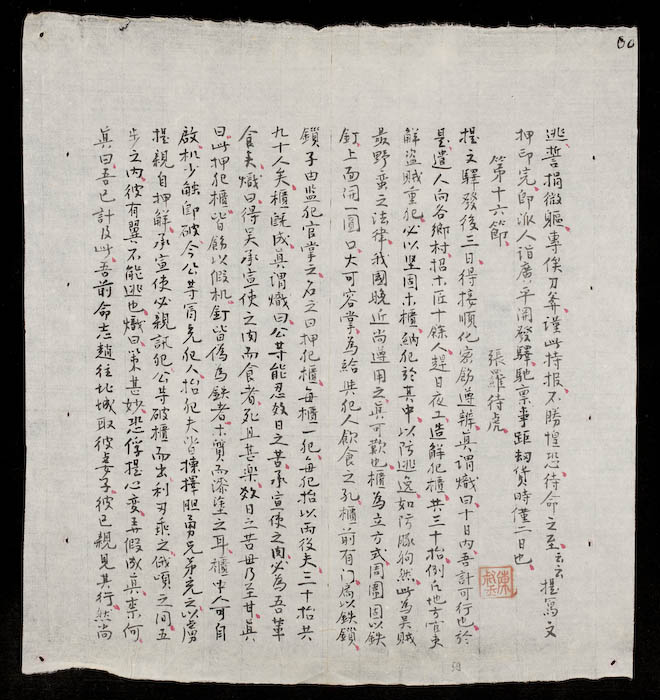 00
逃誓捐微軀專俟刀斧謹此特报不勝惶恐待命之至云云提寫文
押印完即派人詣廣平開發驛馳稟事距劫貨時僅二日也
第十六節 張羅待虎
提文驛發後三日得接順化密飭遵辦真謂熾曰十日內吾計可行也於
是遣人向各鄉村招木匠十餘人趕日夜工造解犯櫃共三十抬例凡地方官吏
解盜賊重犯必以坚固木櫃納犯於其中以防逃逸如防豚狗然此為吴賊
最野蛮之法律我國晚近尚遵用之真可歎也櫃為立方式周圍固以鉄
釘上面開一圓口大可容掌為給與犯人飲食之孔櫃前有门扃以鉄鎖
鎖子由监犯官掌之名之曰押犯櫃每櫃一犯每犯抬以两俊夫三十抬共
九十人矣櫃旣成真謂熾曰公等能忍数日之苦承宣使之肉必為吾輩
食矣熾曰得吴承宣使之肉而食者死且甚楽数日之苦毋乃至甘真
曰此押犯櫃皆飭以假机釘皆偽為鉄者木質而漆塗之耳櫃中人可自
啟机少触即破今公等冒充犯人抬犯夫皆揀擇胆勇兄弟充之以虜
提親自押解承宣使必親訊犯公等破櫃而出利刃乘之俄頃之间五
步之內彼有翼不能逃也熾曰策甚妙恐俘提心变弄假成真柰何
真曰吾已計及此吾前命志趙往北城取彼妻子彼已親見其行然尚
50